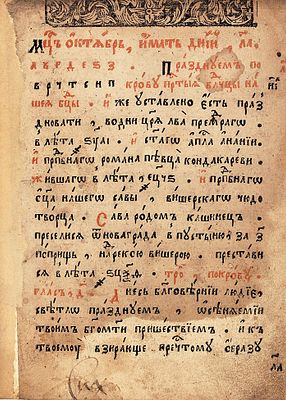 Мц҃ъ октѧбрь, и҆мать днїй л҃а
а҃ в҃ г҃ д҃ е҃ ѕ҃ з҃ Празднуемъ по
кровъ прⷭ҇тыѧ влⷣчцы на
шеѧ бцⷣы · и҆же уставлено є҆сть праз
дновати, во дни црѧ льва премⷣраго ·
в лѣта · и҆ стаго апⷭ҇ла ананїи ·
и҆ прпⷣбнаго романа пѣвца кондакареви ·
жившаго в лѣта · и҆ прпⷣбнаго
ѻ҆ц҃а нашего савы, вишерскаго чюдо
творца · Сава родомъ кашинецъ ·
преселисѧ ѿ новаграда в пустыню, за з҃
поприщь, на рекою вишерою · престави
сѧ в лѣта · тро покрову ·
гласъ, д҃ · Днесь благовѣрнїи людїе,
свѣтло празднуемъ, ѡ҆сѣнѧемїи
твоимъ бг҃омт҃и пришествїемъ · и҆ къ
твоемоу взирающе пречⷭ҇тому ѻ҆бразу
ла